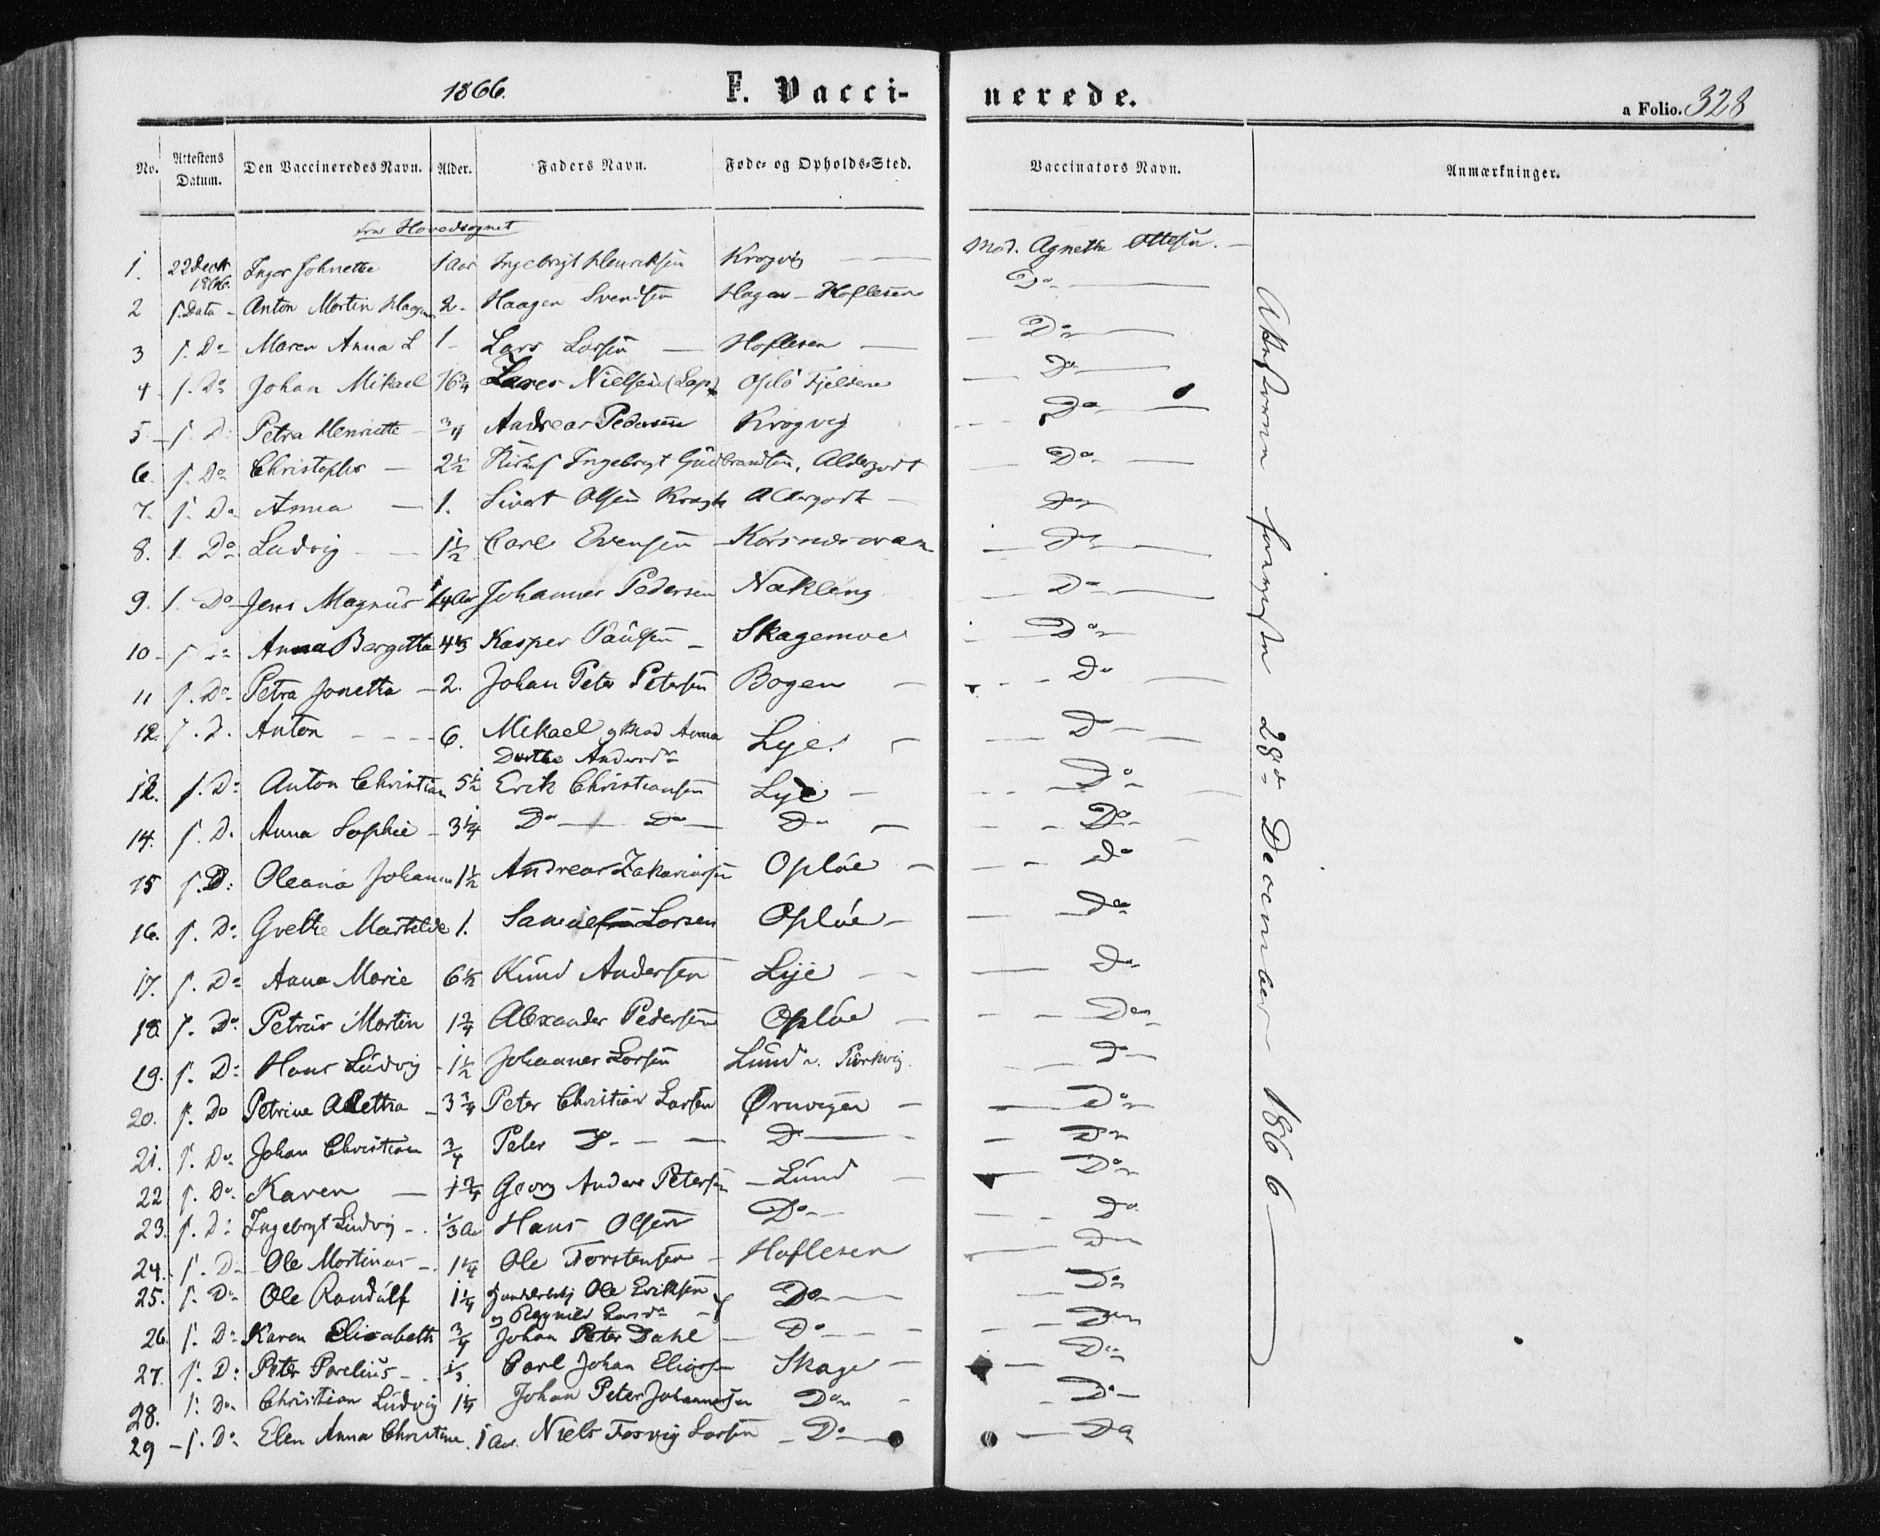 1866. F. Vacci- nerede. a Folio. 328
No. Attestens Datum. Den Vaccineredes Navn. Alder. Faders Navn. Føde- og Opholds-Sted. Vaccinators Navn. Anmærkninger.
fra Hovedsognet
1. 22 Decbr 1866. Inger Johnette 1 Aar Ingebrigt Henriksen Krogvig Mad. Agnethe Ottesen.
2 s. Dato Anton Mortin Haagen 2 Haagen Svendsen Hagen Hoflesen Do
3 s. Do Maren Anna L 1 Lars Larsen Hoflesen Do
4 s. Do Johan Mikael Nielsen (Lap) Oplø Fjeldene Do
5 s. D. Petra Henriette 3/4 Andreas Pedersen Krogvig Do
6. s. Do Christopher 2 1/2 Ingebrigt Gudbrandsen, Aldergodt Do
7. s. Do Anna 1. Sivert Olsen Aldergodt Do
8. s. Do Ludvig 1 1/2 Carl Evensen Korsnæs Do
9. s. Do Jens Magnus Johannes Pedersen Nakling Do
10 s. Do Anna Bergitha Kasper Paulsen Skagemoe Do
11 s. Do Petra Jonetta 2. Johan Peter Petersen Bogen Do
12. s. D. Anton 6. Mikael og Mad Anna Dorthe Andersdr Lye. D
12. s. Do Anton Christian 5 1/2 Erik Christiansen Lye Do
14. s. D. Anna Sophie 3 1/4 Do Do Do Do
15 s. D: Oleana Johanna 1 1/2 Andreas Zakariasen Opløe Do
16. s. Do Grethe Martilde 1. Samuel Larsen Opløe Do
17. s. Do Anna Marie 6 1/2 Knud Andersen Lye Do
18. s. Do Petrus Mortin 1 3/4 Alexander Pedersen Opløe Do
19. s. Do Hans Ludvig 1 1/2 Johannes Larsen Lund Do
20. s. Do Petrine Aletta 3 3/4 Peter Christian Larsen Ørnvigen Do
21. s. Do Johan Christian 3/4 Peter D D Do
22 s. Do Karen 1 3/4 Georg Anders Petersen Lund Do
23. s. D: Ingebrigt Ludvig 1/3 Aar Hans Olsen Do Do
24. s. Do Ole Mortinus 1 1/4 Ole Torstensen Hoflesen Do
25. s. Do Ole Randulf 1 1/4 Ole Eriksen og Ragnild Larsdr Do Do
26 s. Do Karen Elisabeth 3/4 Johan Peter Dahl Do Do
27. s. Do Peter Parelius 1/3. Carl Johan Eliasen Skage Do
28. s. Do Christian Ludvig 1 1/4 Johan Peter Johannesen Do Do
29 s. Do Elen Anna Christine. 1 Aar. Niels Larsen Do Do
28de December 1866